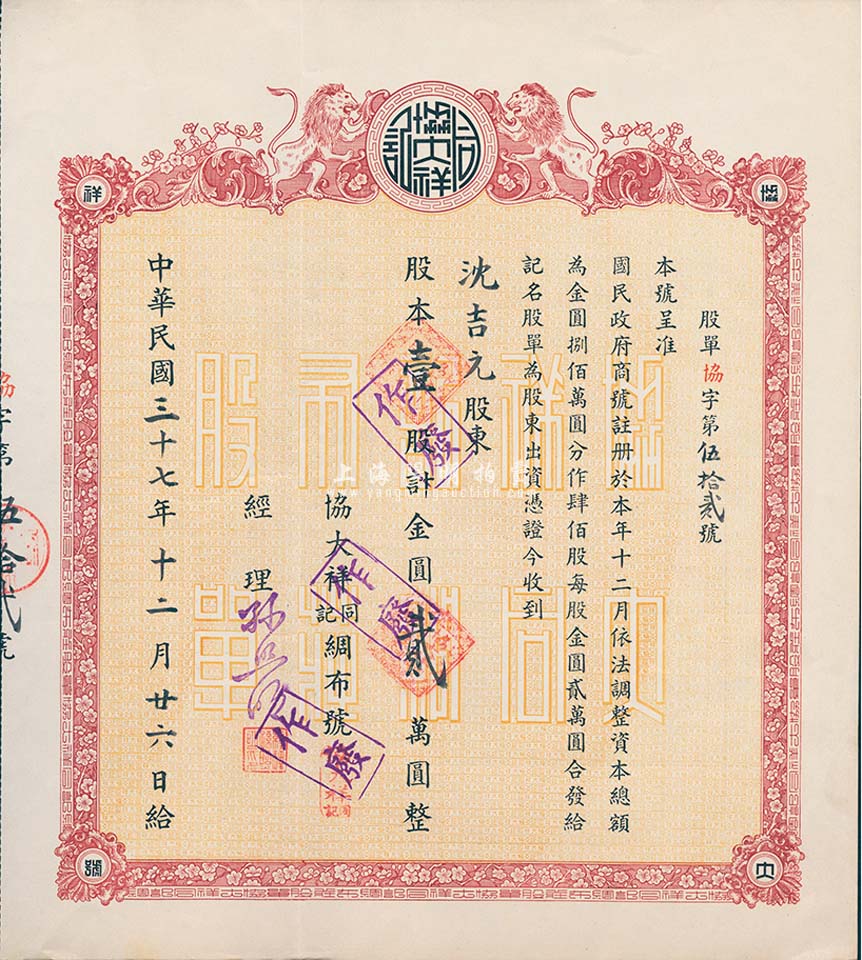 協大祥同記
協
大
祥
號
股單協字第伍拾貳號
本號呈准
國民政府商號註册於本年十二月依法調整資本總額
為金圓捌佰萬圓分作肆佰股每股金圓貳萬圓合發給
記名股單為股東出資憑證今收到
沈吉元股東
股本壹股計金圓貳萬圓整
協大祥同記綢布號
經理
中華民國三十七年十二月廿六日給
協字第伍拾貳號
作廢
作廢
作廢